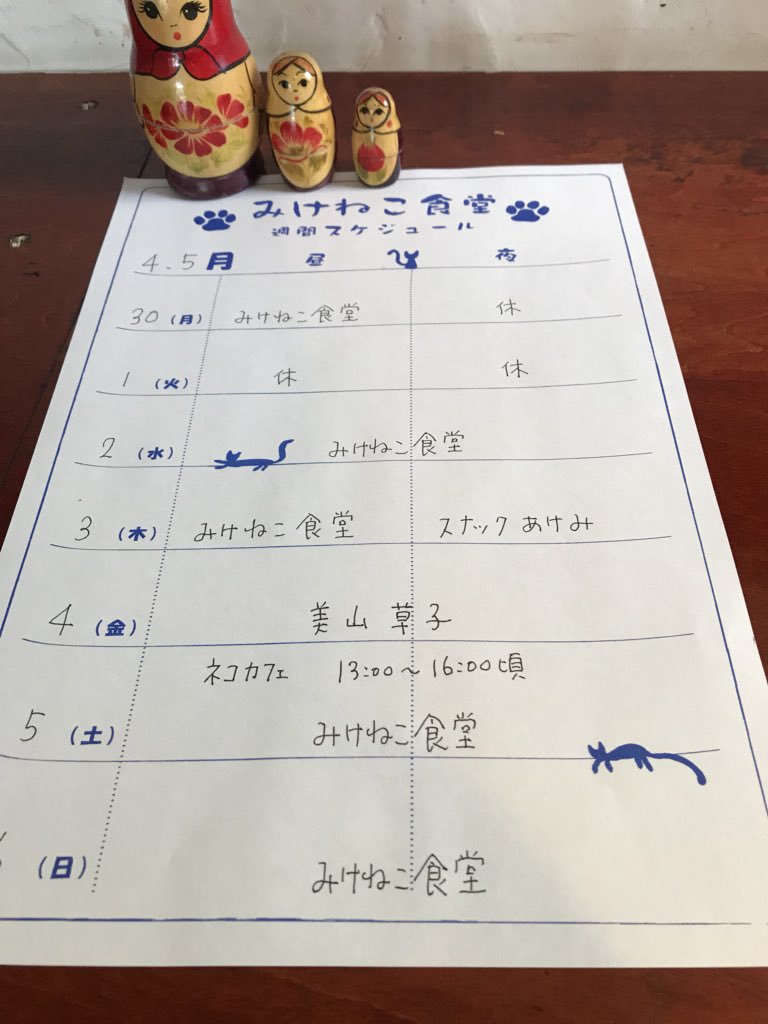 みけねこ食堂
週間スケジュール
4.5月 昼 夜
30 (月) みけねこ食堂 休
1 (火) 休 休
2 (水) みけねこ食堂
3 (木) みけねこ食堂 スナックあけみ
4 (金) 美山草子
ネコカフェ 13:00~16:00頃
5 (土) みけねこ食堂
(日) みけねこ食堂